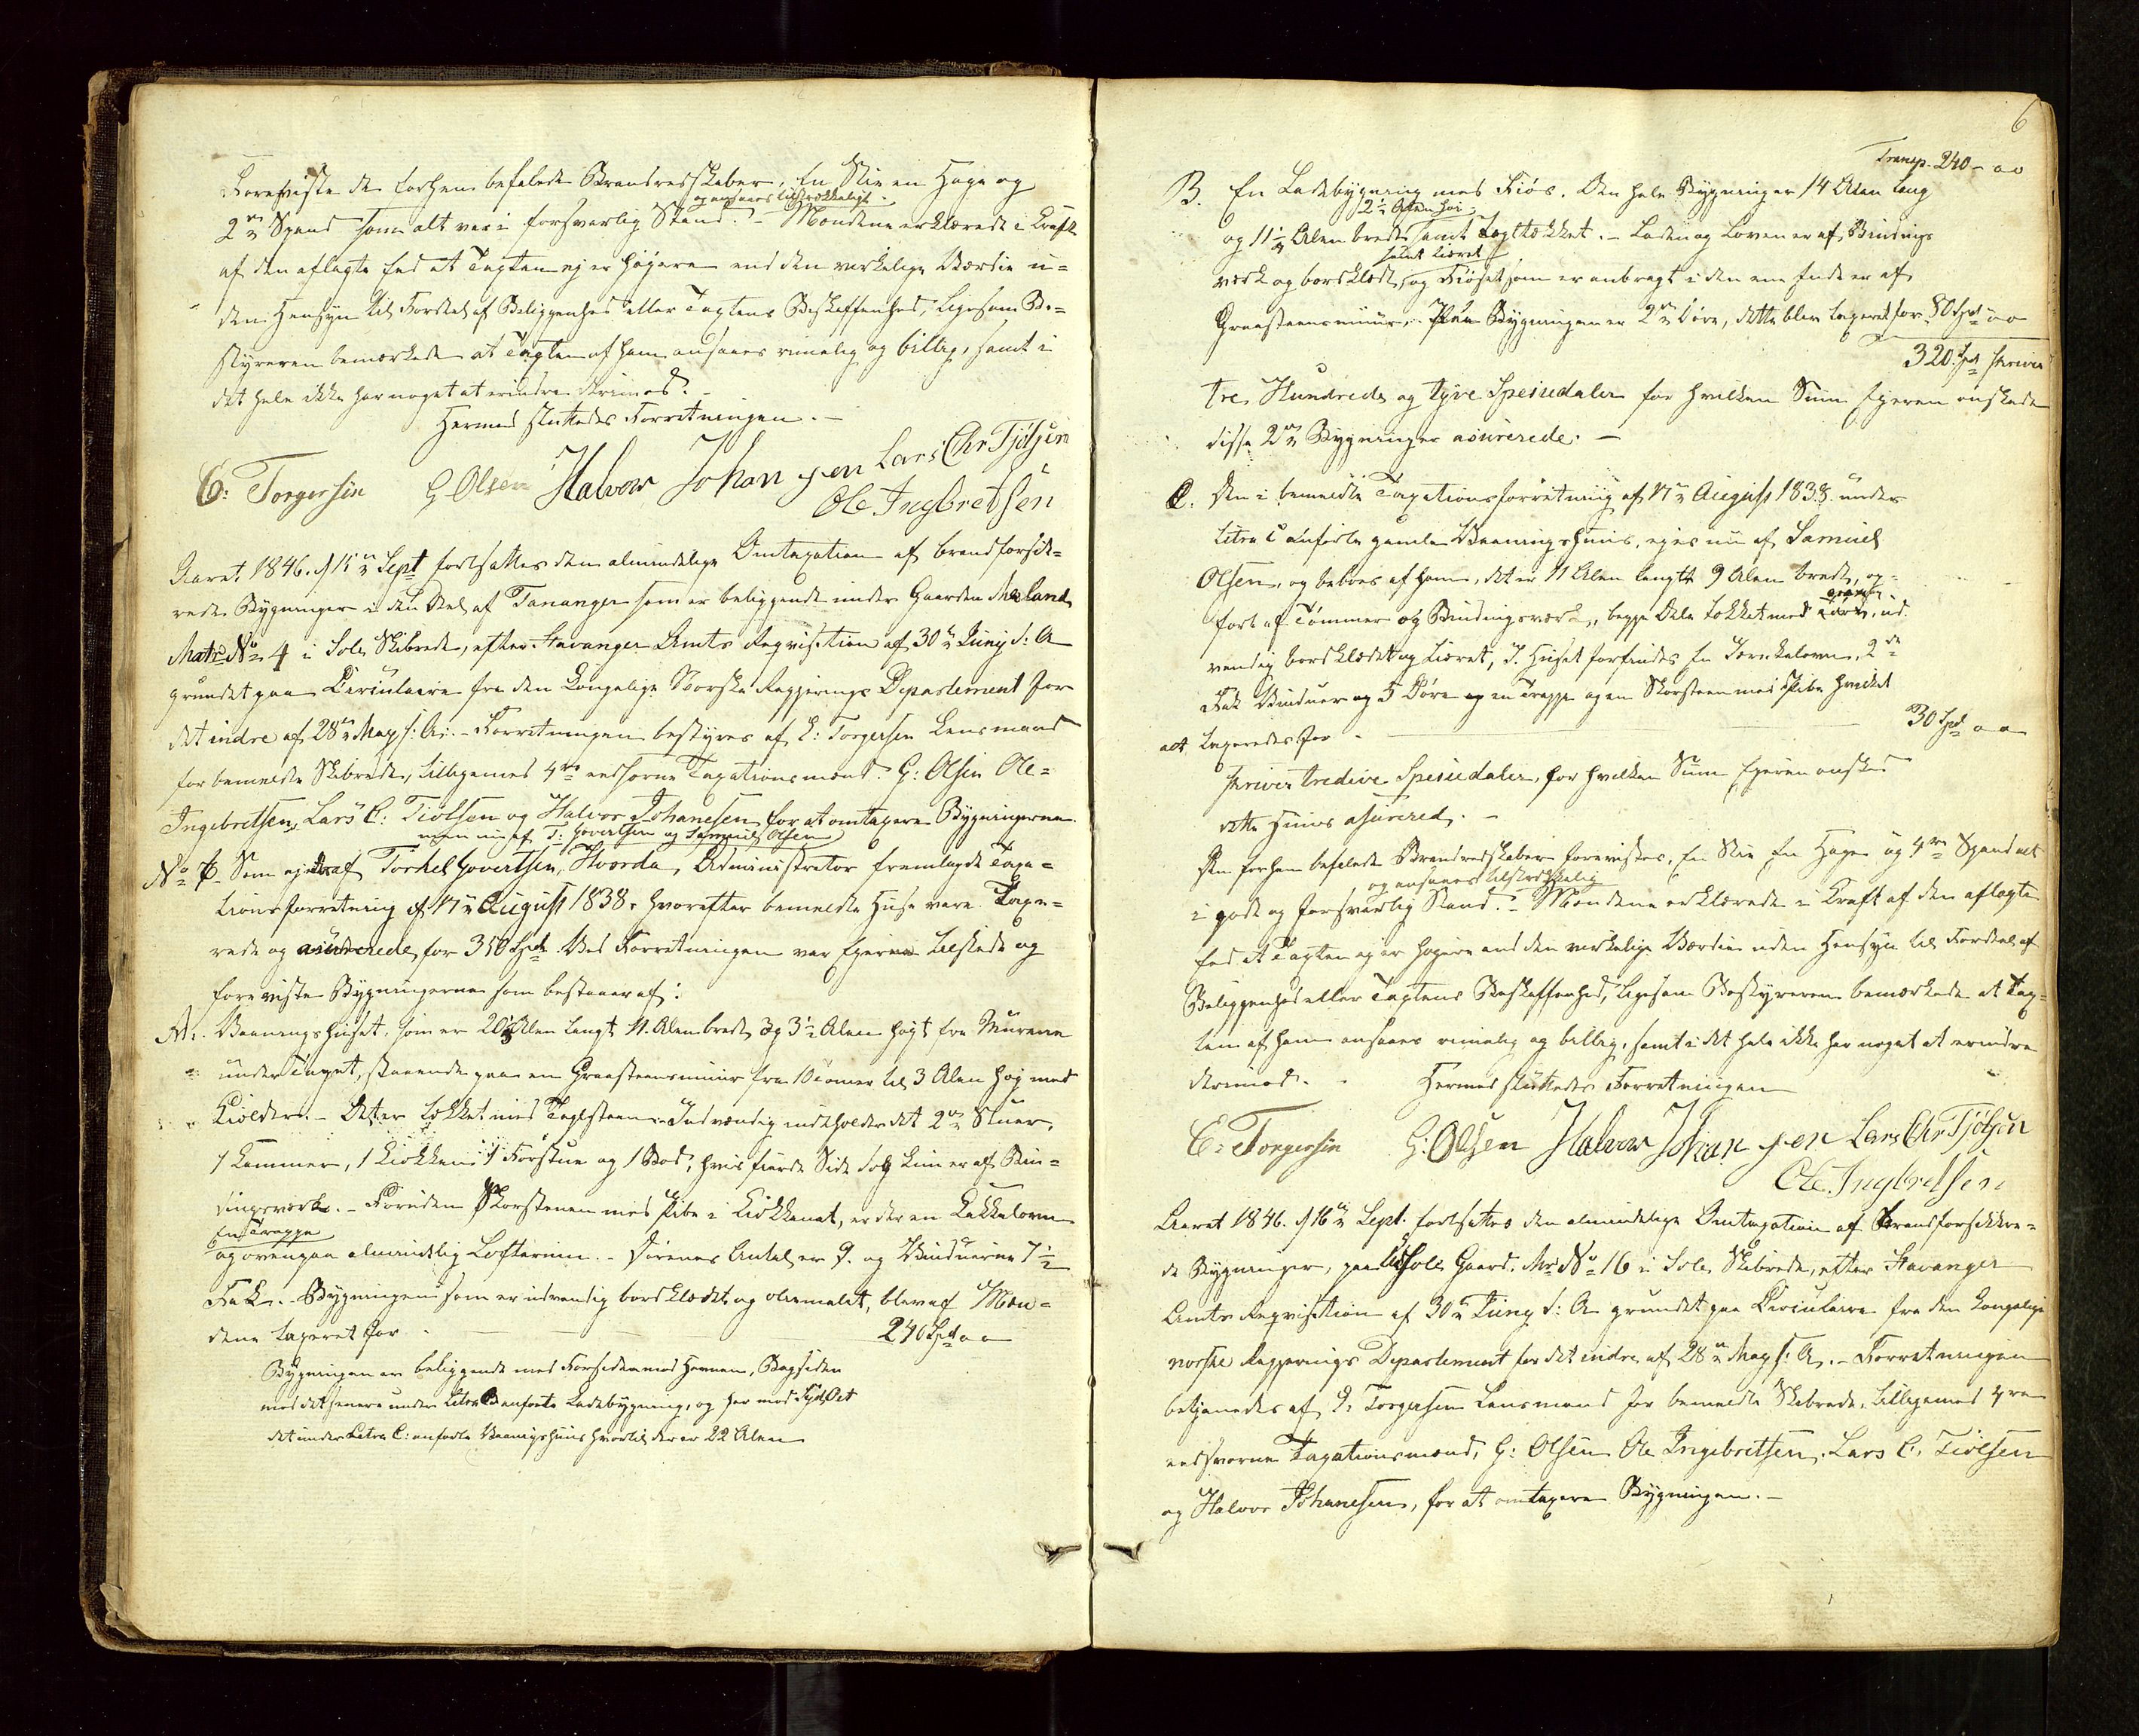 Forevists de forhen befalede Brandredskaber, En Stie en Hage og
og ansaaes tilstrækkeligt
2de Spand som alt var i forsvarlig Stand. - Mændene erklærede i Kraft
af den aflagte Eed at Taxten ej er høiere end den virkelige Værdie u=
den Hensyn til Fordel af Beliggenhed eller Taxtens Beskaffenhed, ligesom Be=
styreren bemærkede at Taxten af ham ansaaes rimelig og billig, samt i
det hele ikke har noget at erindre derimod. -
Hermed sluttedes Forretningen. -
E: Torgersen G Olsen Halvor Johan sen Lars Chr Tjølsen
Ole Ingbretsen
Aaret 1846. d 15de Sept fortsattes den almindelige Omtaxation af brandforsik=
rede Bygninger i den Deel af Tananger som er beliggende under Gaarden Meland
Matr No 4 i Sole Skibrede, efter Stavanger Amts Reqvisition af 30te Juny d: A
grundet paa Circulaire fra den Kongelige Norske Regjerings Departement for
det indre af 28de May s: A: - Forretningen bestyres af E: Torgersen Lensmand
for bemeldte Skibrede, tilligemed 4re eedsvorne Taxationsmænd. G: Olsen Ole
Ingebretsen, Lars C: Tiølsen og Halvor Johanesen for at omtaxere Bygningerne
men nu af T: Govertsen og Samuel Olsen
No 6. Som ejedes af Torkel Govertsen, Hværda, Administrator fremlagde Taxa=
tionsforretning af 17de August 1838. hvorefter bemeldte Huse vare Taxe=
rede og asurerede for 350 Spd. Ved Forretningen var Ejerne tilstede og
foreviste Bygningerne som bestaaer af:
A. Vaaningshuset, som er 20 Alen langt 11. Alen bredt og 3½ Alen høit fra Murene
under Taget, staaende paa en Graasteensmuur fra 10 tomer til 3 Alen høj med
Kielder. - Det er tækket med Taglsteen. Indvændig indeholder det 2de Stuer,
1 Kammer, 1 Kiøkken 1 Forstue og 1 Bod, hvis fierde Side Kun er af Bin=
dingsværk. - Foruden Skorstenen med Pibe i Kiøkkenet, er der en Kakkelovn
En Trappe
og ovenpaa almindelig Lofterum. - Dørenes Antal er 9. og Vinduerne 7½
Fak. - Bygningen som er udvendig bordklædt og oliemalet, blev af Mæn=
dene taxeret for - 240 Spd " "
Bygningen er beliggende med Forsiden mod Havnen, Bagsiden
mod det senere under Litra B anførte Ladebygning, og har mod Syd Ost
det under Litra C: anførte Vaaningshuus hvortil der er 22 Alen
6
Transp. 240 - " "
B. En Ladebygning med Fiøs. Den hele Bygning er 14 Alen lang
2½ Alen høi
og 11½ Alen bredt samt Tagltækket. - Laden og Loven er af Bindings
samt tiæret
værk og bordklædt, og Fiøset som er anbragt i den ene Ende er af
Graasteensmuur. - Paa Bygningen er 2de Døre, dette blev taxeret for 80 Spd " "
320 Spd skriver
tre Hundrede og tyve Spesiedaler for hvilken Sum Ejeren ønskede
disse 2de Bygninger asurerede. -
C. Den i bemeldte Taxationsforretning af 17de August 1838. under
Litra C anførte gamle Vaaningshuus, ejes nu af Samuel
Olsen, og beboes af ham, det er 11 Alen langt 9 Alen bredt, op=
ført af Tømmer og Bindingsværk, begge Dele tækket med Tørv, ud=
vendig bordklædet og tiæret, I Huset forfindes En Jernkakelovn, 2de
Fak Vinduer og 5 Døre og en Trappe og en Skorsteen med Pibe hvilket
alt taxeredes for - 30 Spd " "
skriver tredive Spesiedaler, for hvilken Sum Ejeren ønsker
dette Huus asurered. -
Den forhen befalede Brandredskaber forevistes, En Stie En Hage og 4re Spand alt
og ansaaes tilstrækkelig
i god og forsvarlig Stand. - Mændene erklærede i Kraft af den aflagte
Eed at Taxten ej er høiere end den virkelige Værdie uden Hensyn til Fordeel af
Beliggenhed eller Taxtens Beskaffenhed, ligesom Bestyreren bemærkede at Tax=
ten af ham ansaaes rimelig og billig, samt i det hele ikke har noget at erindre
derimod. - Hermed sluttedes Forretningen
E: Torgersen G: Olsen Halvor Johan sen Lars Chr Tjølsen
Ole Ingbretsen
Aaret 1846. d 16de Sept. fortsattes den almindelige Omtaxation af Brandforsikkre=
de Bygninger, paa Sole Gaard. Mr No 16 i Sole Skibrede, efter Stavanger
Amts Reqvisition af 30te Juny d: A grundet paa Circulaire fra den Kongelige
norske Regjerings Departement for det indre af 28de May s: A. - Forretningen
betjenedes af E: Torgersen Lensmand for bemeldte Skibrede, tilligemed 4re
eedsvorne Taxationsmænd, G: Olsen Ole Ingebretsen, Lars C. Tiølsen
og Halvor Johanesen, for at omtaxere Bygningen. -